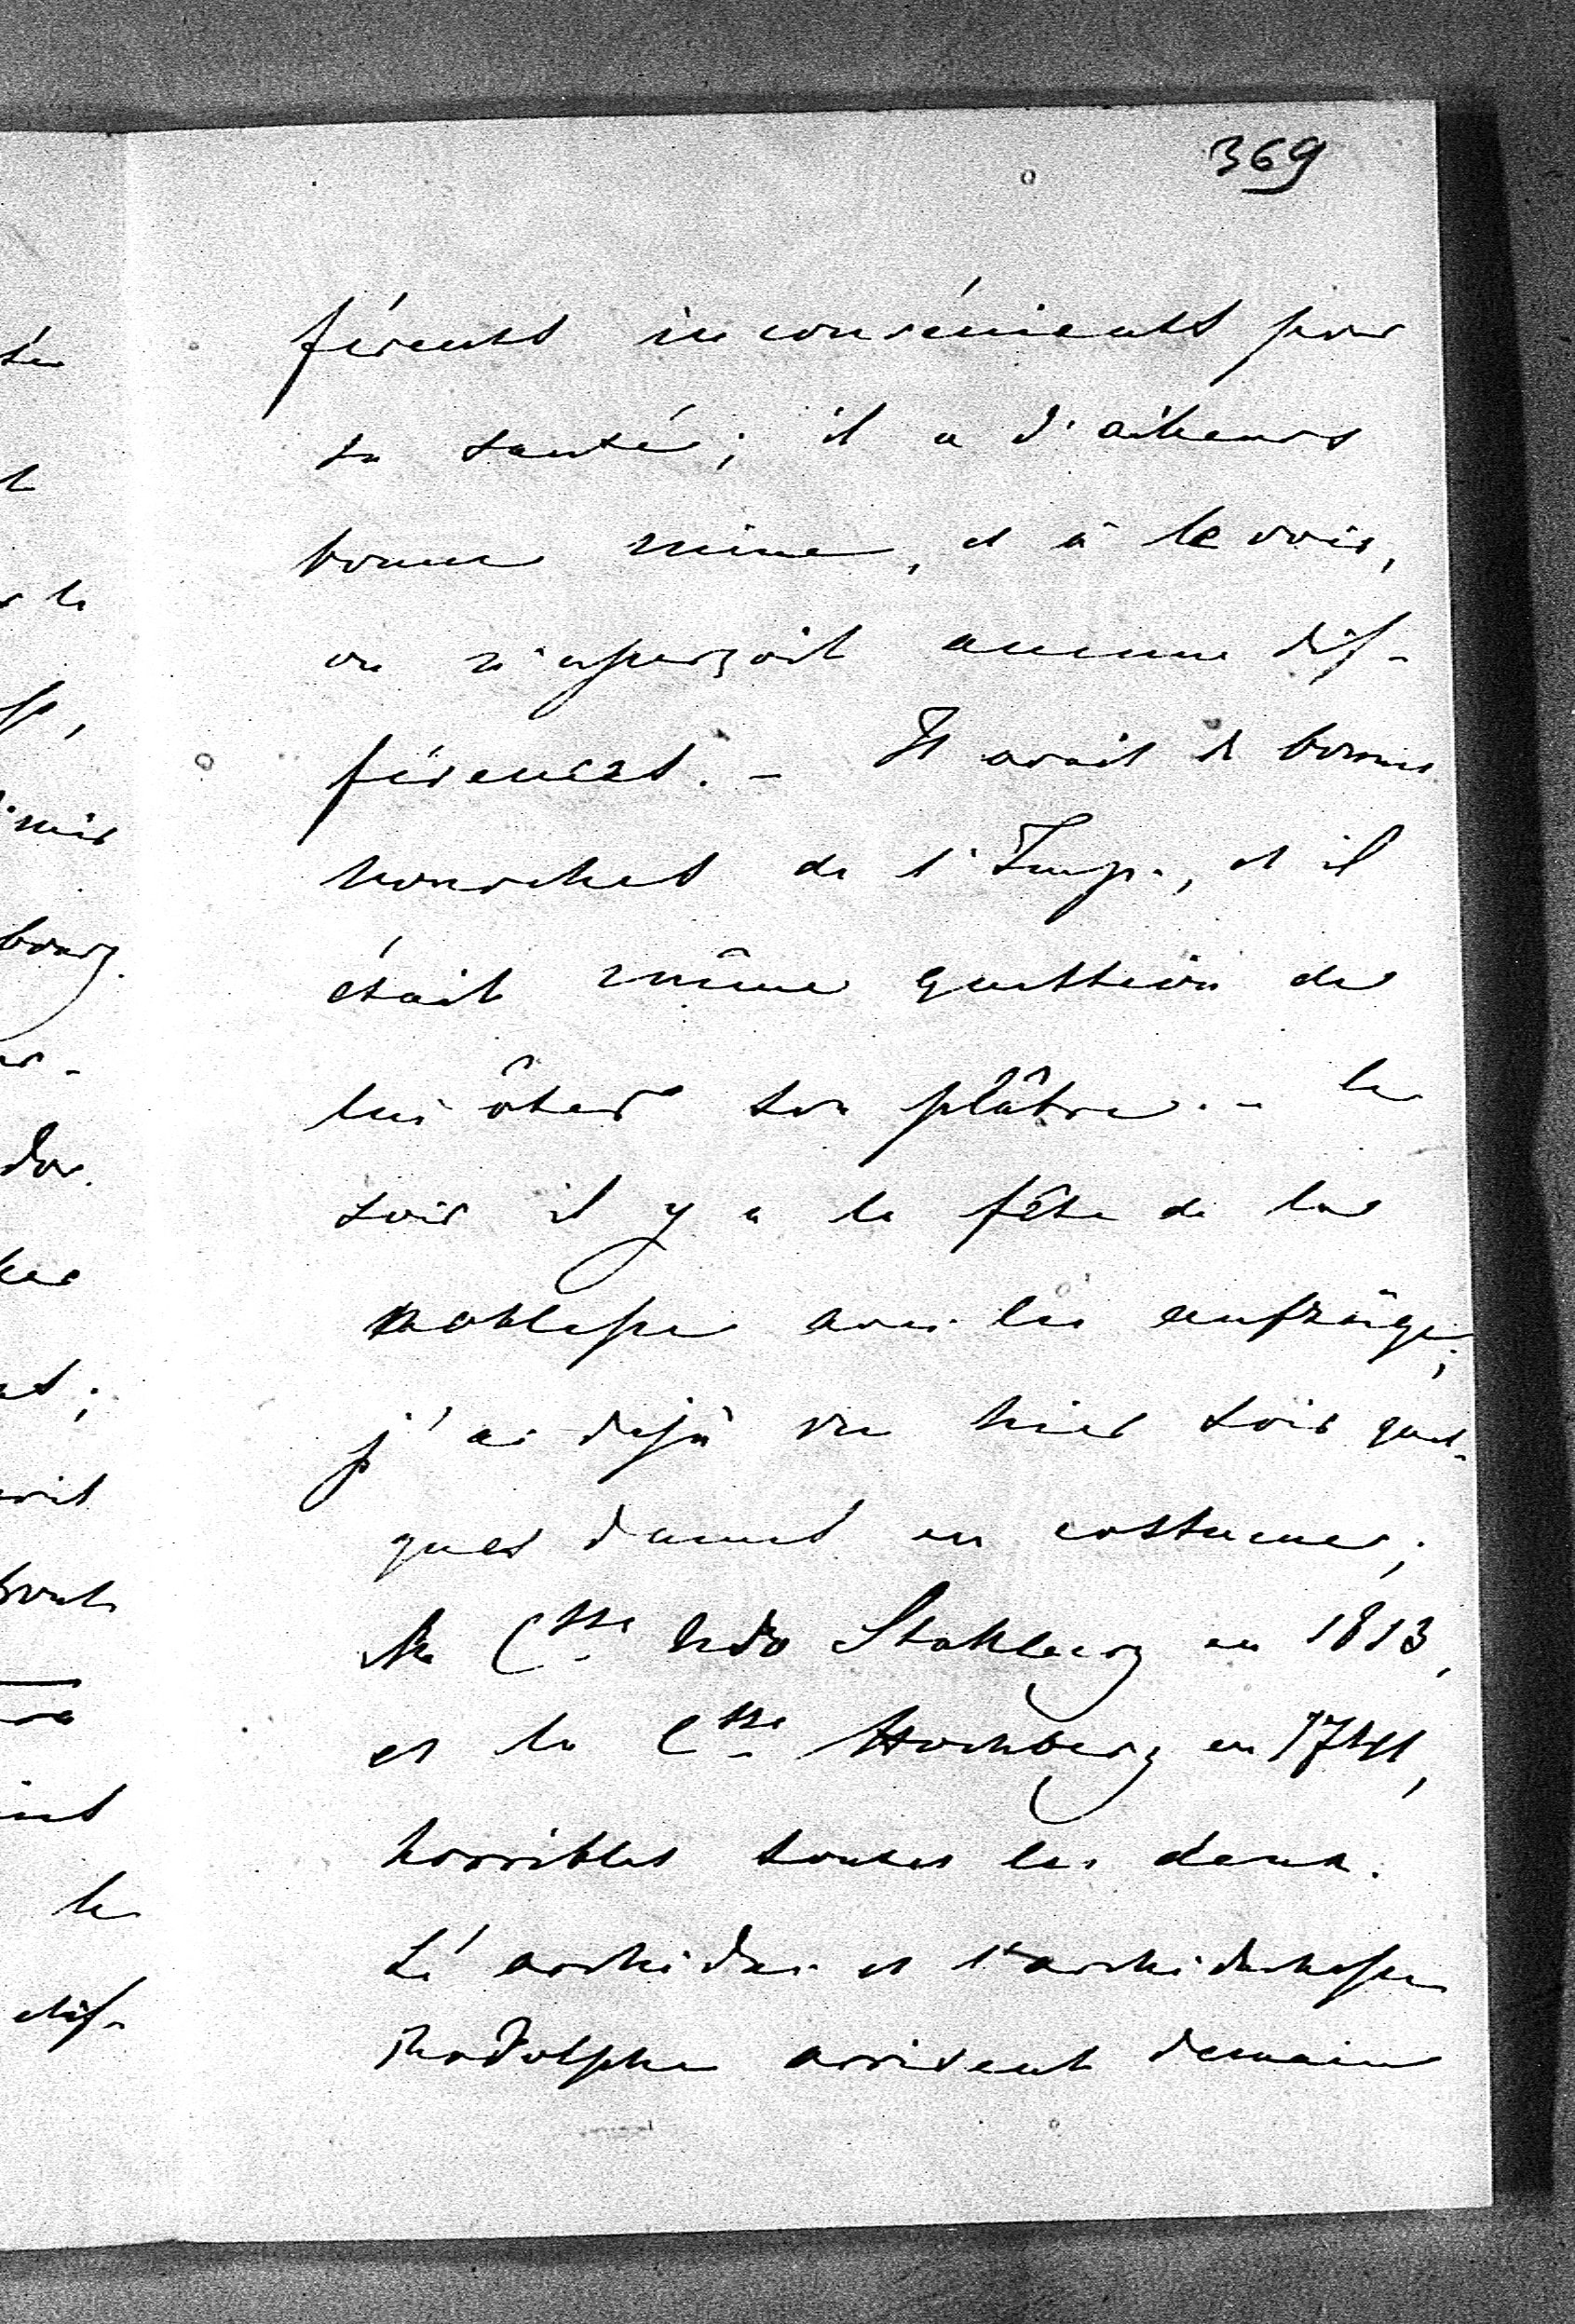 369
férents inconvénients pour
sa santé; il a d'ailleurs
bonne mine, et à le voir,
on n'aperçoit aucune dif-
férences. - Il avait de bonnes
nouvelles de l'Imp., et il
était même question de
lui ôter son plâtre. - Ce
soir il y a la fête de la
noblesse avec les aufzüge;
j'ai dejà vu hier soir quel-
ques dames en costumes;
la Csse Udo Stolberg en 1813,
et la Csse Hochberg en 1741,
horribles toutes les deux.
L'archiduc et l'archiduchesse
Rodolphe arrivent demain